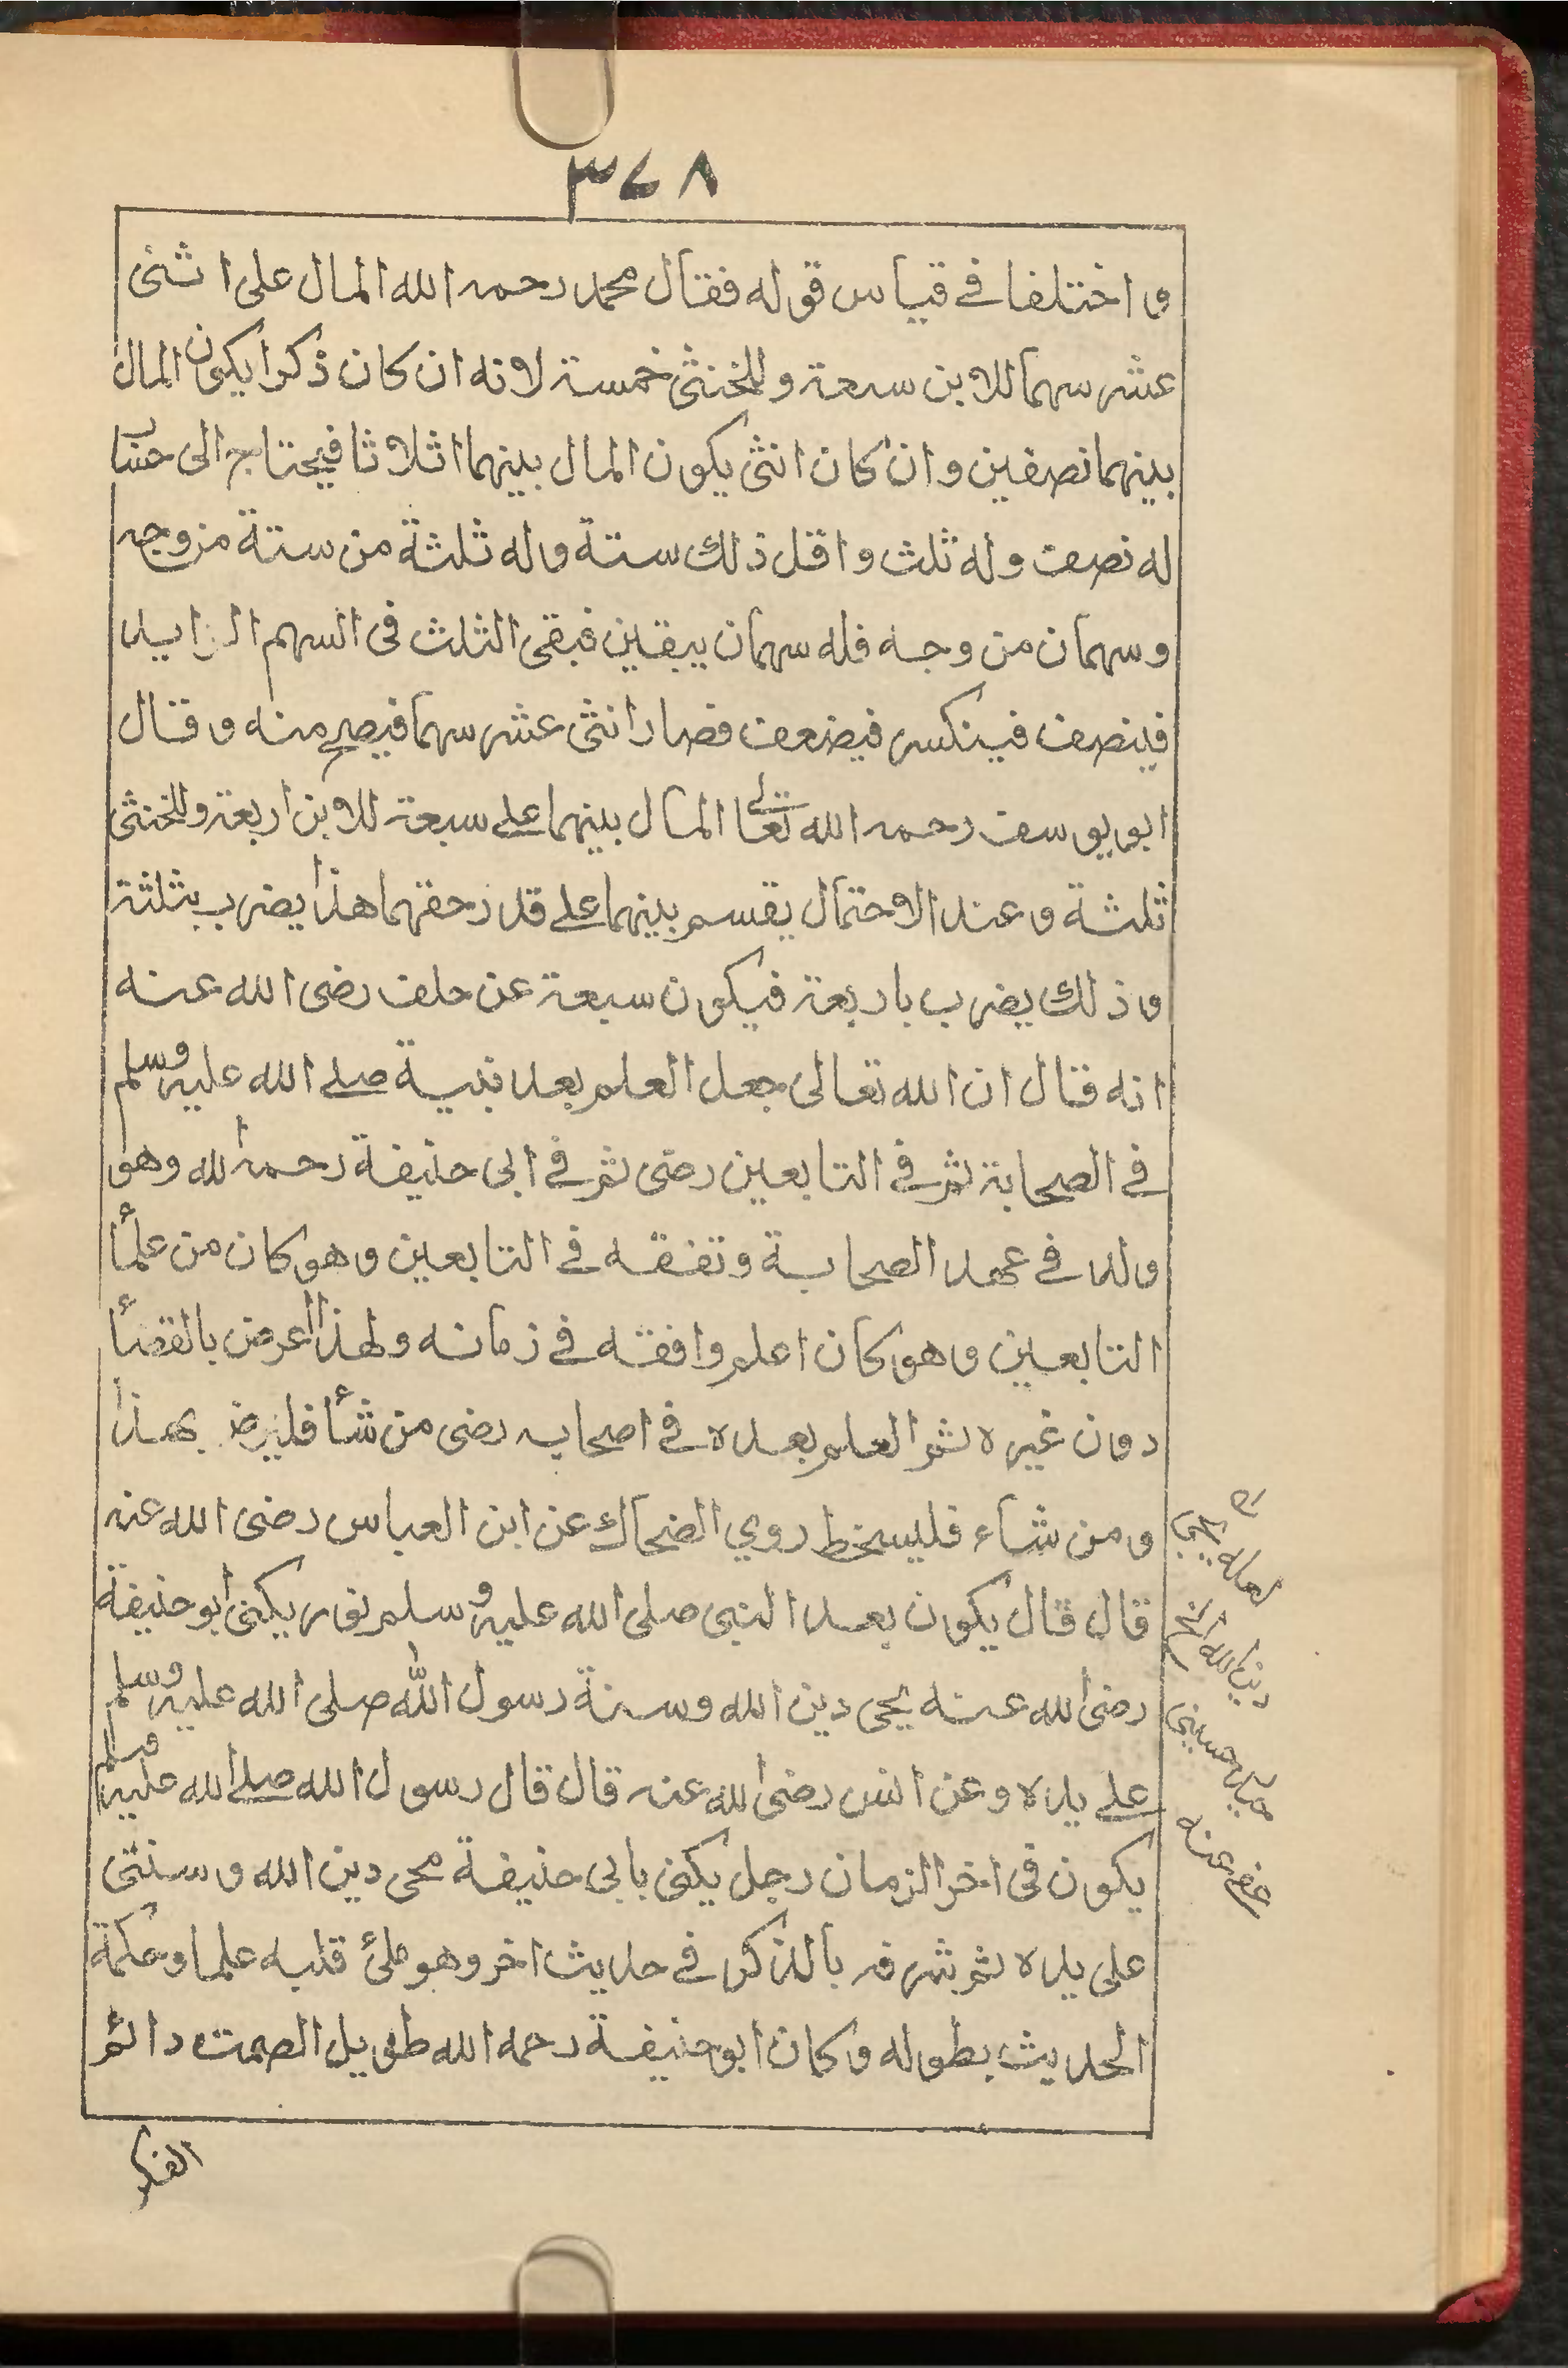 ٣٧٨
و اختلفا في قياس قوله فقال محمد رحمه الله المال على اثنى
عشر سهما للابن سبعة و للخنثى خمسة لانه ان كان ذكرا يكون المال
بينهما نصفين و ان كان انثى يكون المال بينهما اثلاثا فيحتاج الى حساب
له نصف وله ثلث و اقل ذلك ستة وله ثلثة من ستة من وجه
و سهمان من وجه فله سهمان بيقين فبقى الثلث فى السهم الزايد
فينصف فينكسر فيضعف فصار اثنى عشر سهما فيصح منه و قال
ابو يوسف رحمه الله تعالى المال بينهما على سبعة للابن اربعة وللخنثى
ثلثة و عند الاحتمال يقسم بينهما على قدر حقهما هذا يضرب بثلثة
و ذلك يضرب باربعة فيكون سبعة عن خلف رضى الله عنه
انه قال ان الله تعالى جعل العلم بعد نبيه صلى الله عليه وسلم
في الصحابة ثم في التابعين رضى ثم في ابى حنيفة رحمه الله وهو
ولد في عهد الصحابة و تفقه في التابعين و هو كان من علمأ
التابعين و هو كان اعلم و افقه في زمانه و لهذا اعرض بالقضأ
دون غيره ثم العلم بعده في اصحابه رضى من شأ فليرض بهذا
و من شاء فليسخط روي الضحاك عن ابن العباس رضى الله عنه
قال قال يكون بعد النبى صلى الله عليه وسلم نور يكنى ابو حنيفة
رضى الله عنه يحى دين الله و سنة رسول الله صلى الله عليه وسلم
على يده و عن انس رضى الله عنه قال قال رسول الله صلى الله عليه وسلم
يكون فى اخر الزمان رجل يكنى بابى حنيفة محى دين الله و سنتى
على يده ثم بشر فه بالذكر في حديث اخر وهو ملئ قلبه علما وحكمة
الحديث بطوله و كان ابو حنيفة رحمه الله طويل الصمت دائم
الفكر
لعله يحيى
دين الله الخ
حسينى
عفى عنه